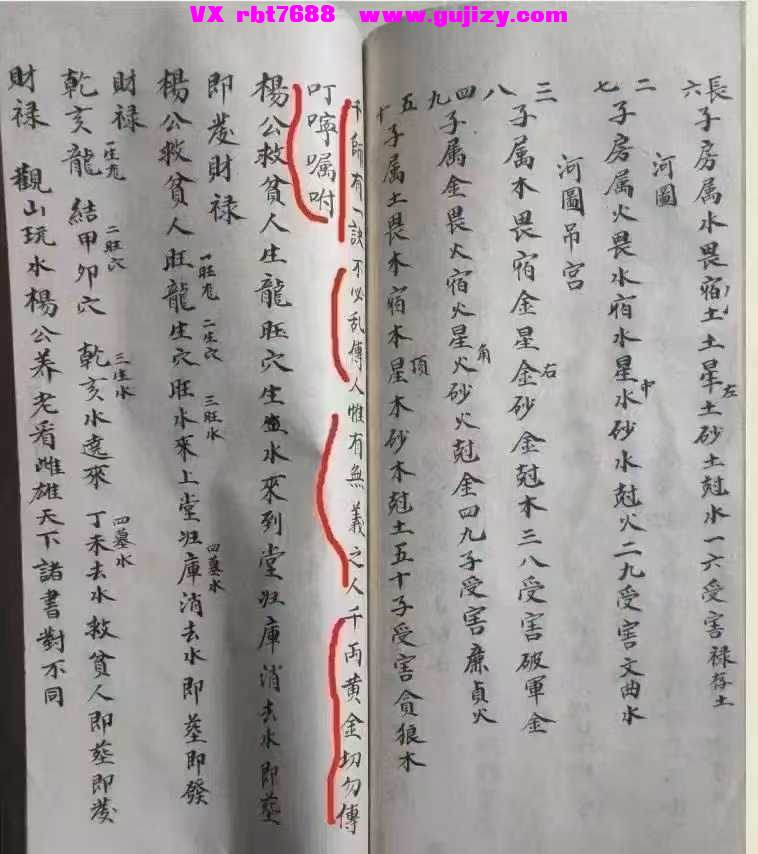 VX rbt7688 www.gujizy.com
長子房属水畏宿土土星土砂土尅水一六受害禄存土
六
左
河圖
二子房属火畏水宿水星水砂水尅火二九受害文曲水
七
中
河圖吊宫
三子属木畏宿金星金砂金尅木三八受害破軍金
八
右
四子属金畏火宿火星火砂火尅金四九子受害廉貞火
九
角
五子属土畏木宿木星木砂木尅土五十子受害貪狼木
十
頂
千師有一訣不必乱傳人惟有無義之人千両黄金切勿傳
叮嚀嘱咐
楊公救貧人生龍旺穴生水來到堂归庫消去水即塟
即發財禄
楊公救貧人旺龍生穴旺水來上堂归庫消去水即塟即發
一旺龙 二生穴 三旺水 四墓水
財禄
乾亥龍 結甲卯穴 乾亥水遠來 丁未去水救貧人即塟即發
一生龙 二旺穴 三生水 四墓水
財禄 觀山玩水楊公养老看雌雄天下諸書對不同